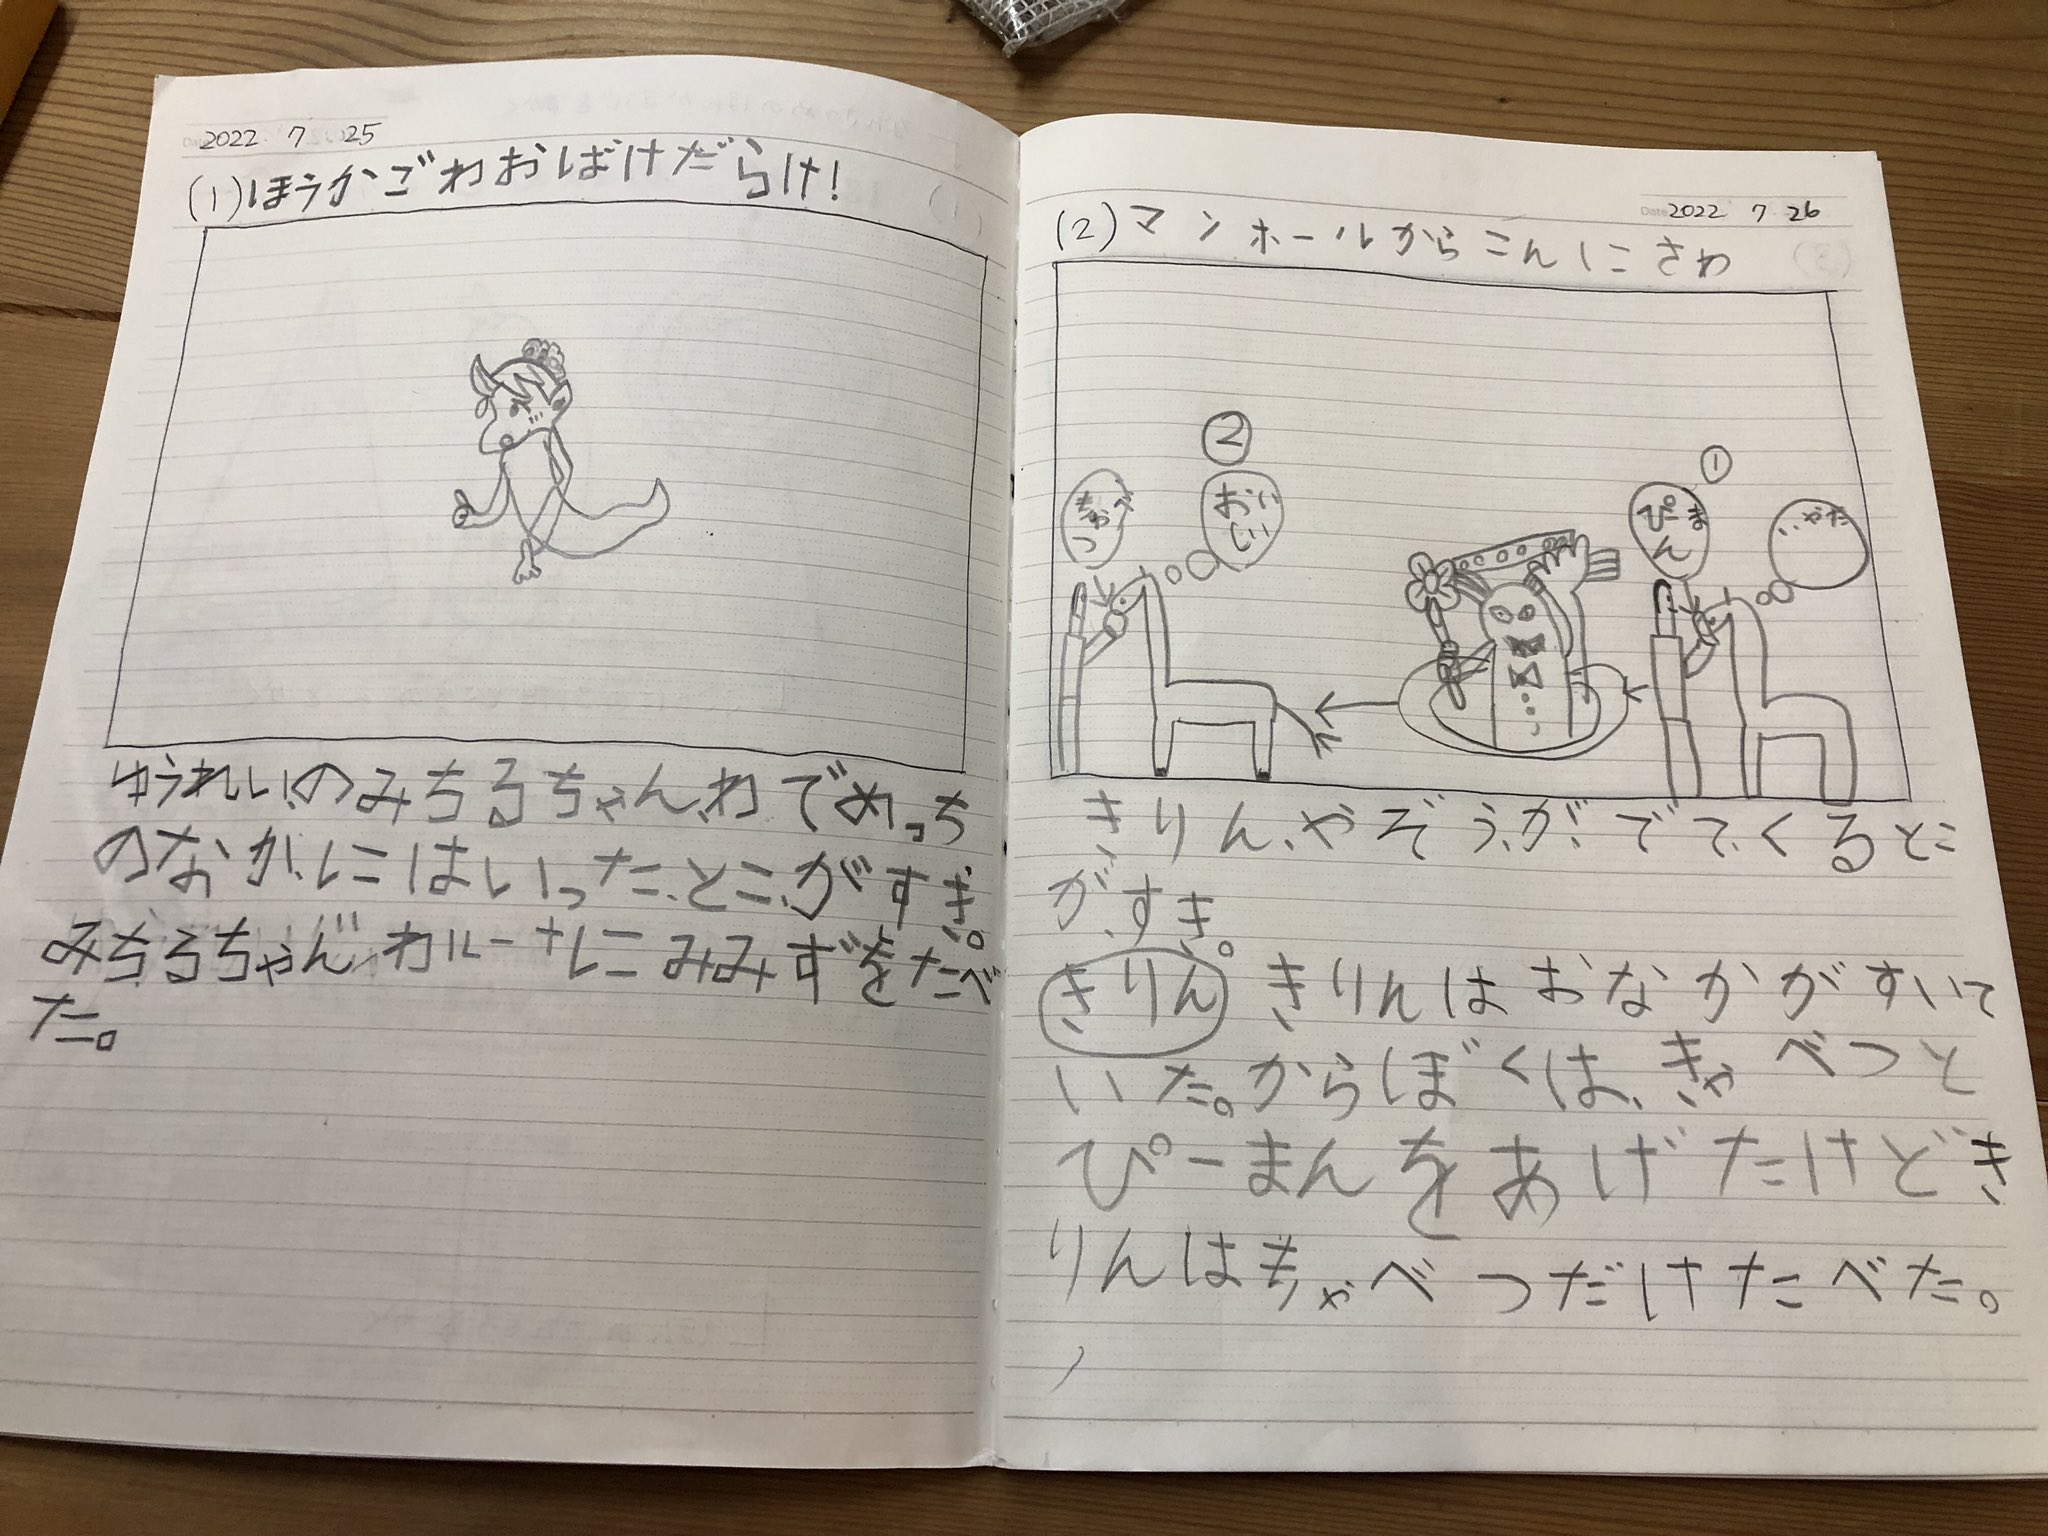 2022 7 25
(1)ほうかごわおばけだらけ!
ゆうれいのみちるちゃんわでめっち
のなかにはいったとこがすき。
みちるちゃんわルーナにみみずをたべ
た。
Date 2022 7 26
(2)マンホールからこんにさわ
②
①
きゃべつ
おいしい
ぴーまん
いやだ
きりんやぞうがでてくるとこ
がすき。
きりん きりんはおなかがすいて
いた。からぼくは、きゃべつと
ぴーまんをあげたけどき
りんはきゃべつだけたべた。